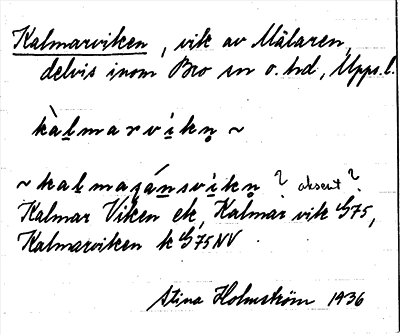 Kalmarviken, vik av Mälaren,
delvis inom Bro sn o. hd, Upps.l.
kàlmarvíkn ~
~ kalmagánsvíkn ? aksent?
Kalmar Viken ek, Kalmar vik G75,
Kalmarviken k G75NV
Stina Holmström 1936